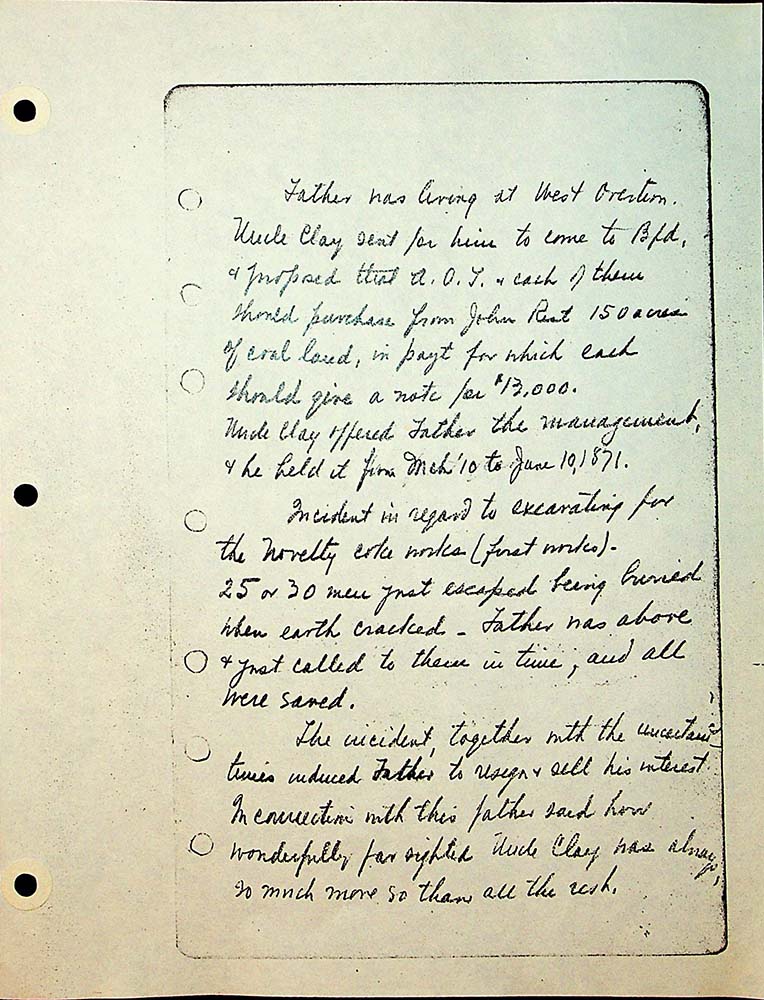 Father was living at West Overton.
Uncle Clay sent for him to come to Bfd,
& proposed that A. O. T. & each of them
should purchase from John Rist 150 acres
of coal land, in payt for which each
should give a note for $13,000.
Uncle Clay offered Father the management,
& he held it from Mch '10 to June 10, 1871.
Incident in regard to excavating for
the Novelty coke works (first works).
25 or 30 men just escaped being buried
when earth cracked - Father was above
& just called to them in time, and all
were saved.
The incident, together with the uncertain
times induced Father to resign & sell his interest.
In connection with this father said how
wonderfully far sighted Uncle Clay was always,
so much more so than all the rest.